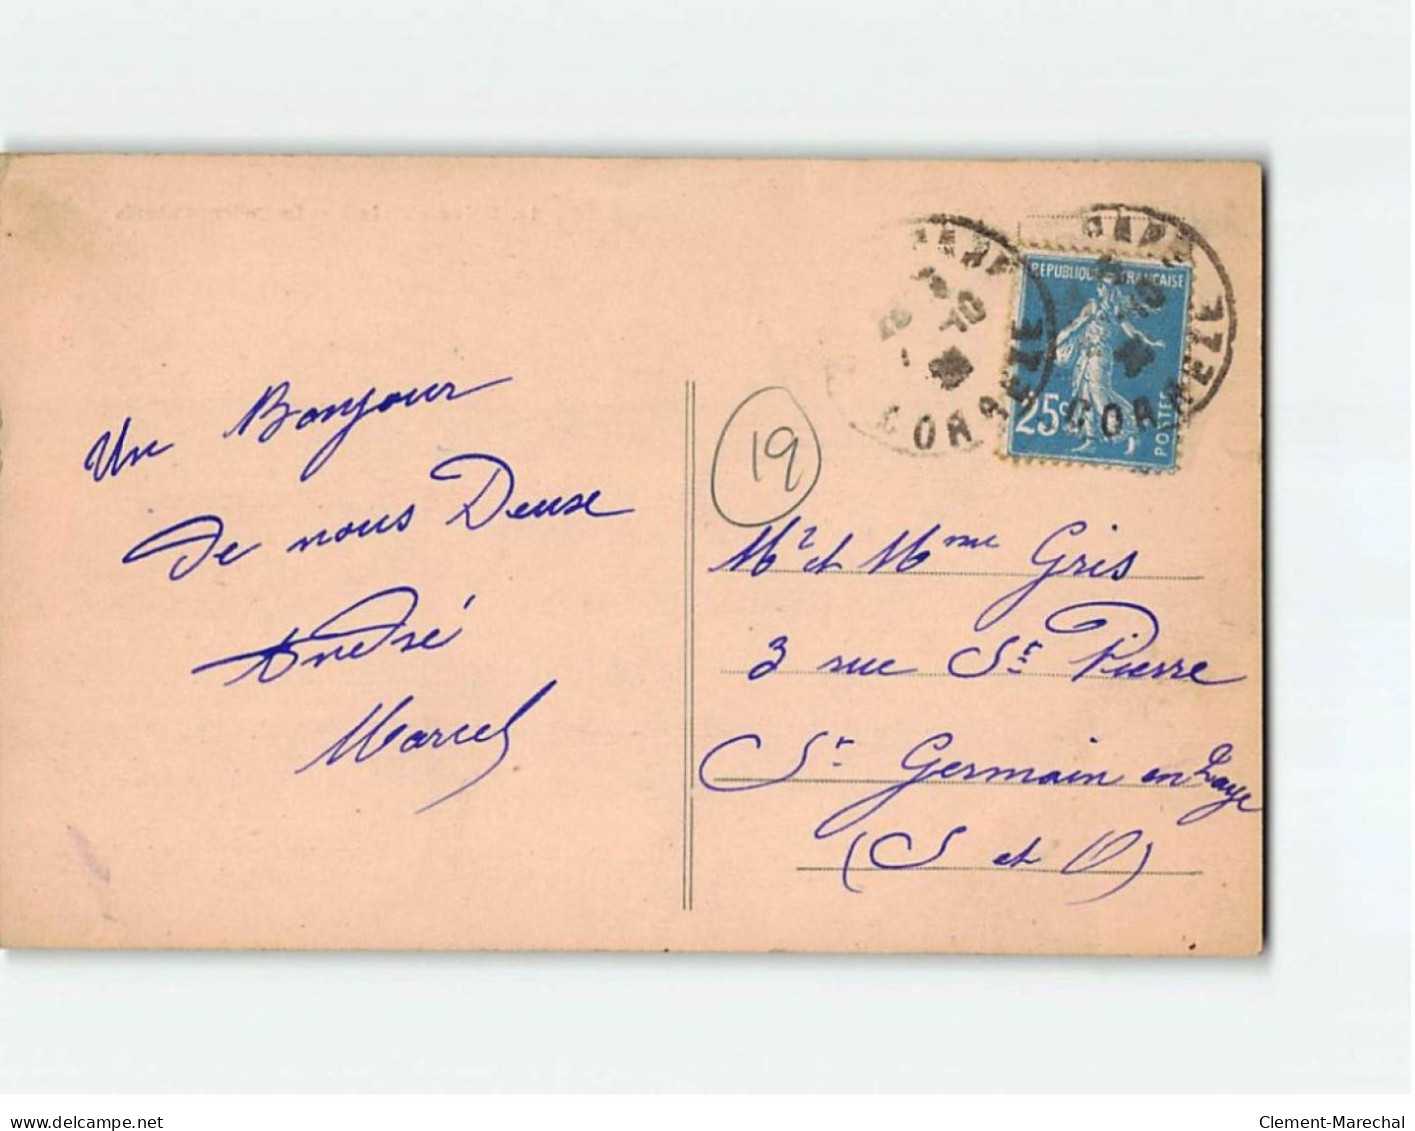 Un Bonjour
de nous Deux
André
Marcel
19
RÉPUBLIQUE FRANÇAISE
25c
POSTES
CORREZE
CORREZE
Mr et Mme Gris
3 rue St Pierre
St Germain en Laye
(S et O)
delcampe.net
Clement-Marechal